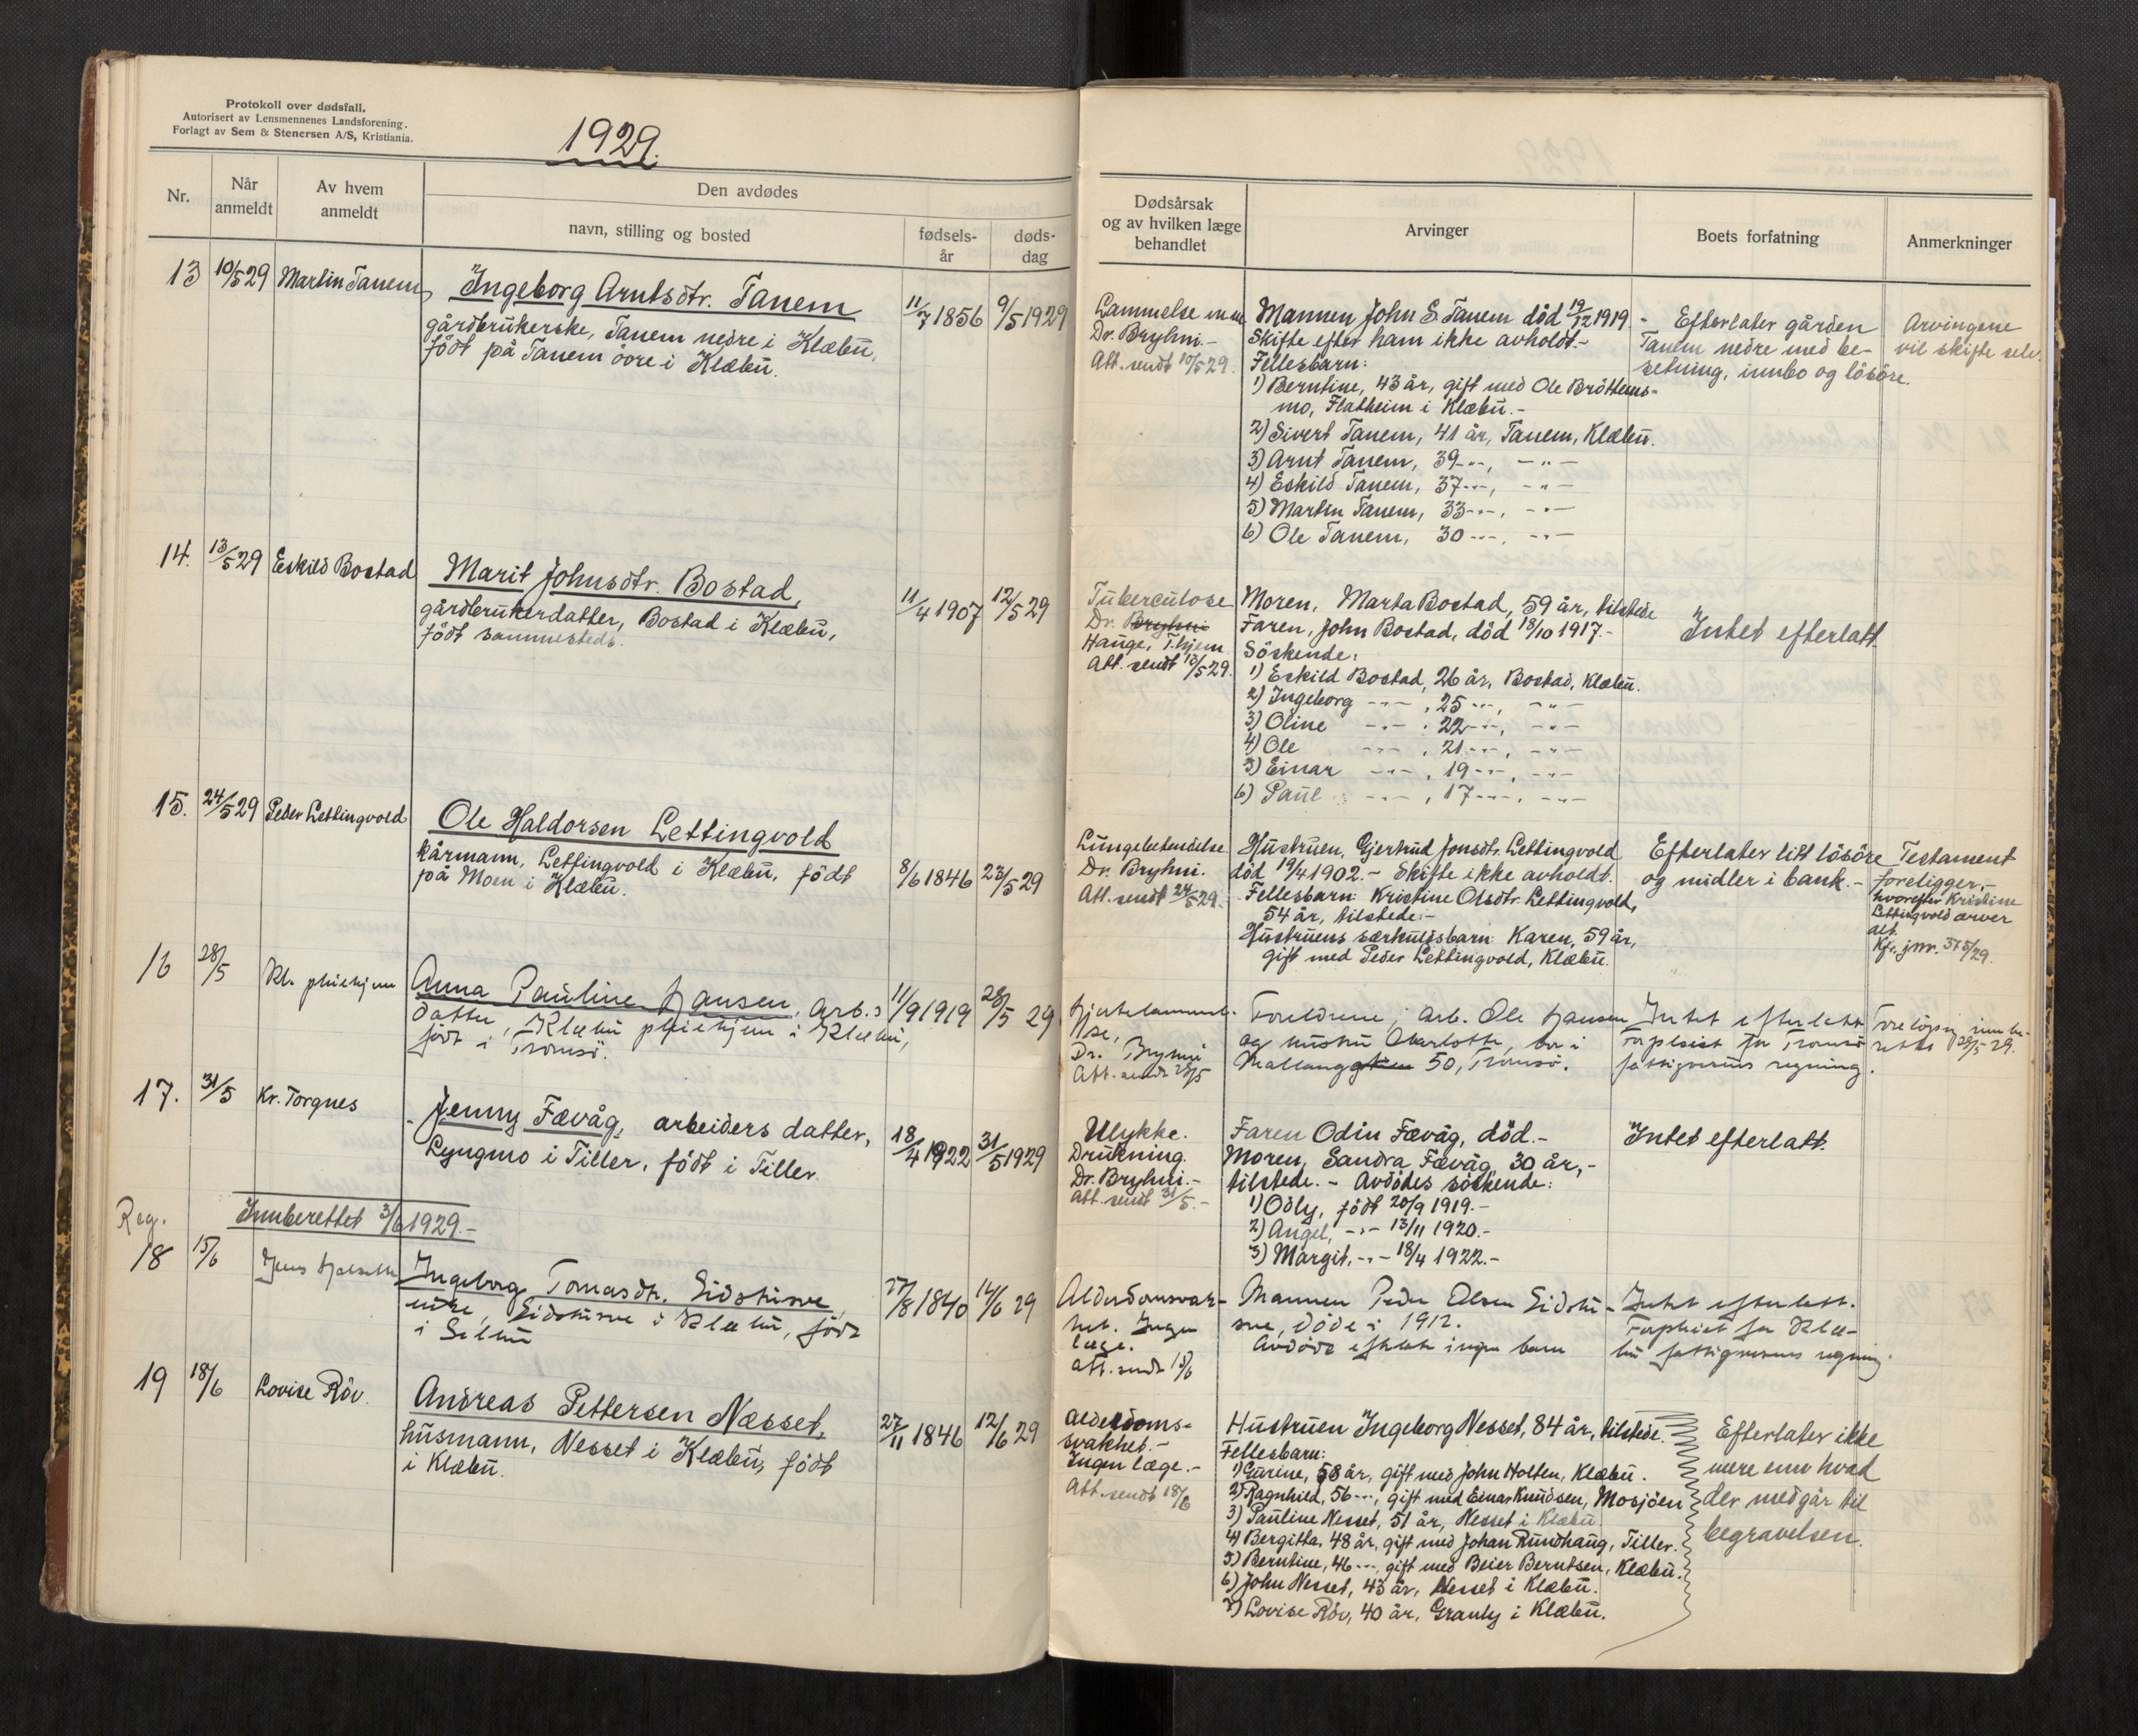 Protokoll over dødsfall.
Autorisert av Lensmennenes Landsforening.
Forlagt av Sem & Stenersen A/S, Kristiania.
1929.
Nr.
Når anmeldt
Av hvem anmeldt
Den avdødes
navn, stilling og bosted
fødsels-år
døds-dag
Dødsårsak
og av hvilken læge
behandlet
Arvinger
Boets forfatning
Anmerkninger
13 10/5 29 Martin Tanem, Ingeborg Arntsdtr. Tanem 11/7 1856 9/5 1929
gårdbrukerske, Tanem nedre i Klæbu,
født på Tanem övre i Klæbu.
Lammelse
Dr. Bryhni.-
Att. sendt 10/5 29.
Mannen John S. Tanem död 19/12 1919.-
Skifte efter ham ikke avholdt.-
Fellesbarn:
1) Berntine, 43 år, gift med Ole Bröttems-
mo, Flatheim i Klæbu.-
2) Sivert Tanem, 41 år, Tanem, Klæbu.
3) Arnt Tanem, 39 -"-, -"-
4) Eskild Tanem, 37 -"-, -"-
5) Martin Tanem, 33 -"-, -"-
6) Ole Tanem, 30 -"-, -"-
Efterlater gården
Tanem nedre med be-
setning, innbo og lösöre.
Arvingene
vil skifte selv.
14. 13/5 29 Eskild Bostad Marit Johnsdtr. Bostad, 11/4 1907 12/5 29
gårdbrukerdatter, Bostad i Klæbu,
født sammesteds.
Tuberculose
Dr. Bryhni
Hauge, T.hjem
Att. sendt 13/5 29.
Moren, Marta Bostad, 59 år, tilstede
Faren, John Bostad, död 18/10 1917.-
Söskende:
1) Eskild Bostad, 26 år, Bostad, Klæbu.
2) Ingeborg -"-, 25 -"-, -"-
3) Oline -"-, 22 -"-, -"-
4) Ole -"-, 21 -"-, -"-
5) Einar -"-, 19 -"-, -"-
6) Paul -"-, 17 -"-, -"-
Intet efterlatt.
15. 24/5 29 Peder Lettingvold Ole Haldorsen Lettingvold 8/6 1846 23/5 29
kårmann, Lettingvold i Klæbu, födt
på Moen i Klæbu.
Lungebetendelse
Dr. Bryhni.
Att. sendt 24/5 29.
Hustruen, Gjertrud Jonsdtr. Lettingvold
död 19/4 1902.- Skifte ikke avholdt.
Fellesbarn: Kristine Olsdtr. Lettingvold,
54 år, tilstede.-
Hustruens særkullsbarn: Karen, 59 år,
gift med Peder Lettingvold, Klæbu.
Efterlater litt lösöre
og midler i bank.-
Testament
foreligger.-
hvorefter Kristine
Lettingvold arver
alt.
Kfr. jnr. 375/29.
16 28/5 Kl. pleiehjem Anna Pauline Hansen, arb.s 11/9 1919 28/5 29
datter, Klæbu pleiehjem i Klæbu,
født i Tromsö.
Hjertelammel-
se,
Dr. Bryhni
Att. sendt 28/5
Foreldrene, arb. Ole Hansen
og hustru Charlotte, bor i
50, Tromsö.
Intet efterlatt
Forpleiet for Tromsö
fattigvesens regning.
innbe-
rettet 28/5 29.
17. 31/5 Kr. Torgnes Jenny Fævåg, arbeiders datter, 18/4 1922 31/5 1929
Lyngmo i Tiller, födt i Tiller.
Ulykke.
Drukning.
Dr. Bryhni.-
Att. sendt 31/5.-
Faren Odin Fævåg, död.-
Moren, Sandra Fævåg, 30 år,-
tilstede.- Avdödes söskende:
1) Odly, födt 20/9 1919.-
2) Angel, -"- 13/11 1920.-
3) Margit, -"- 18/4 1922.-
Intet efterlatt.
Reg. Innberettet 3/6 1929.-
18 15/6 Ingeborg Tomasdtr. Eidstuve, 27/8 1840 14/6 29
enke, Eidstuve i Klæbu, födt
i Selbu
Alderdomsvak-
het. Ingen
læge.
Att. sendt 15/6
Mannen Peder Olsen Eidstu-
ve, döde i 1912.
Avdöde efterlot ingen barn
Intet efterlatt.
Forpleiet for Klæ-
bu fattigvesens regning.
19 18/6 Lovise Röv. Andreas Pettersen Næsset, 27/11 1846 12/6 29
husmann, Nesset i Klæbu, födt
i Klæbu.
Alderdoms-
svakhet.-
Ingen læge.-
Att. sendt 18/6
Hustruen Ingeborg Nesset, 84 år, tilstede.
Fellesbarn:
1) Gurine, 58 år, gift med John Holten, Klæbu.
2) Ragnhild, 56 -"-, gift med Einar Knudsen, Mosjöen
3) Pauline Nesset, 51 år, Nesset i Klæbu.
4) Bergitta, 48 år, gift med Johan Rundhaug, Tiller.
5) Berntine, 46 -"-, gift med Beier Berntsen, Klæbu.
6) John Nesset, 43 år, Nesset i Klæbu.
7) Lovise Röv, 40 år, Granly i Klæbu.
Efterlater ikke
mere enn hvad
der medgår til
begravelsen.